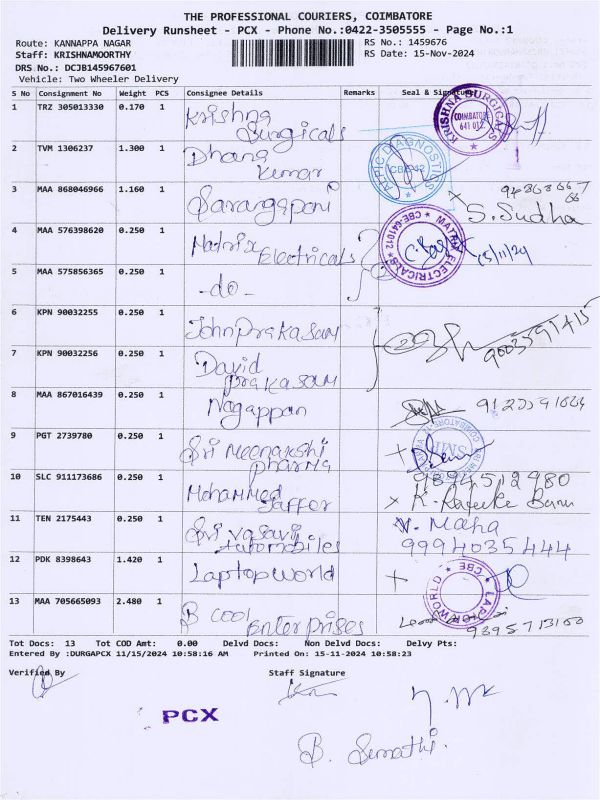 THE PROFESSIONAL COURIERS, COIMBATORE
Delivery Runsheet - PCX - Phone No.:0422-3505555 - Page No.:1
Route: KANNAPPA NAGAR RS No.: 1459676
Staff: KRISHNAMOORTHY RS Date: 15-Nov-2024
DRS No.: DCJB145967601
Vehicle: Two Wheeler Delivery
S No Consignment No Weight PCS Consignee Details Remarks Seal & Signature
1 TRZ 305013330 0.170 1 Krishna Surgicals
KRISHNA SURGICALS COIMBATORE 641 012.
2 TVM 1306237 1.300 1 Dhana Kumar
DIAGNOSTICS
3 MAA 868046966 1.160 1 Sarangapani
S. Sudha
4 MAA 576398620 0.250 1 Matrix Electricals
MATRIX ELECTRICALS CBE-641012 15/11/24
5 MAA 575856365 0.250 1 -do-
6 KPN 90032255 0.250 1 John prakasam
9003591415
7 KPN 90032256 0.250 1 David prakasam
8 MAA 867016439 0.250 1 Nagappan
9 PGT 2739780 0.250 1 Sri Meenakshi pharma
10 SLC 911173686 0.250 1 Mohammed Jaffor
9894512980
x K. Rafeeke Banu
11 TEN 2175443 0.250 1 Sri Vasavi Automobiles
V. Maha
9994035444
12 PDK 8398643 1.420 1 Laptop world
LAPTOP WORLD CBE
13 MAA 705665093 2.480 1 B cool Enterprises
Tot Docs: 13 Tot COD Amt: 0.00 Delvd Docs: Non Delvd Docs: Delvy Pts:
Entered By :DURGAPCX 11/15/2024 10:58:16 AM Printed On: 15-11-2024 10:58:23
Verified By Staff Signature
PCX
B. Sumathi.